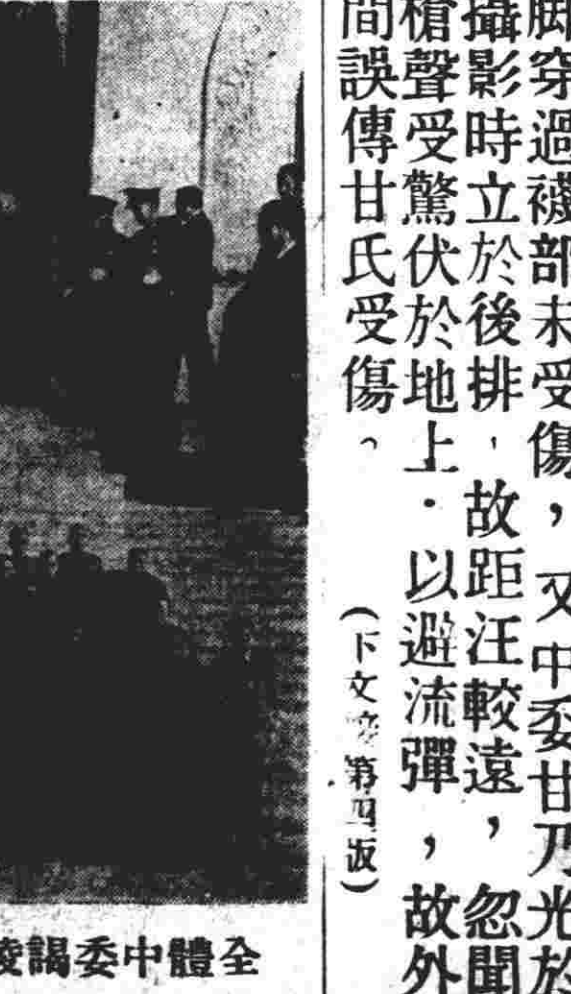 脚穿過襪部未受傷，又中委甘乃光於
攝影時立於後排，故距汪較遠，忽聞
槍聲受驚伏於地上．以避流彈，故外
間誤傳甘氏受傷。
（下文 第四版）
全體中委謁陵